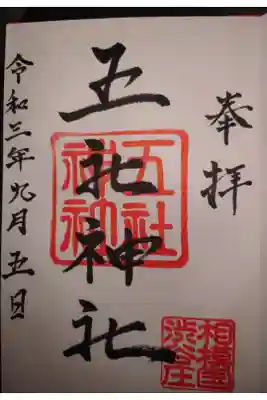 奉拝
五社神社
五社神社
相模国渋谷庄
令和三年九月五日